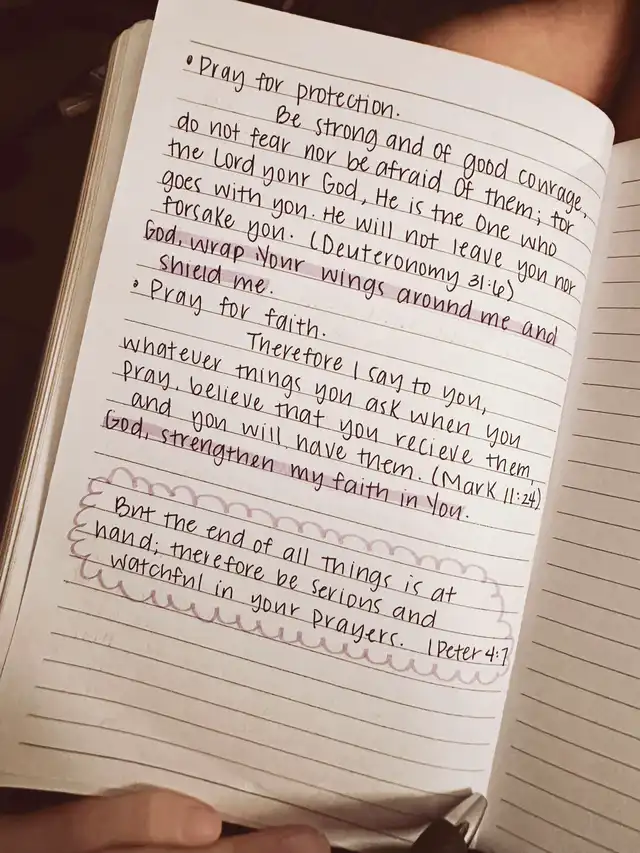 • Pray for protection.
Be strong and of good courage,
do not fear nor be afraid of them; for
the Lord your God, He is the One who
goes with you. He will not leave you nor
forsake you. (Deuteronomy 31:6)
God, wrap Your wings around me and
shield me.
• Pray for faith.
Therefore I say to you,
whatever things you ask when you
pray, believe that you recieve them,
and you will have them. (Mark 11:24)
God, strengthen my faith in You.
But the end of all things is at
hand; therefore be serious and
watchful in your prayers. 1 Peter 4:7